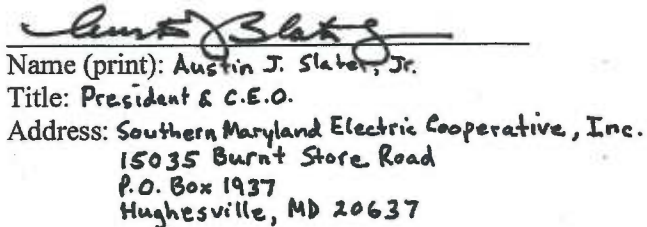 Name (print): Austin J. Slater, Jr.
Title: President & C.E.O.
Address: Southern Maryland Electric Cooperative, Inc.
15035 Burnt Store Road
P.O. Box 1937
Hughesville, MD 20637